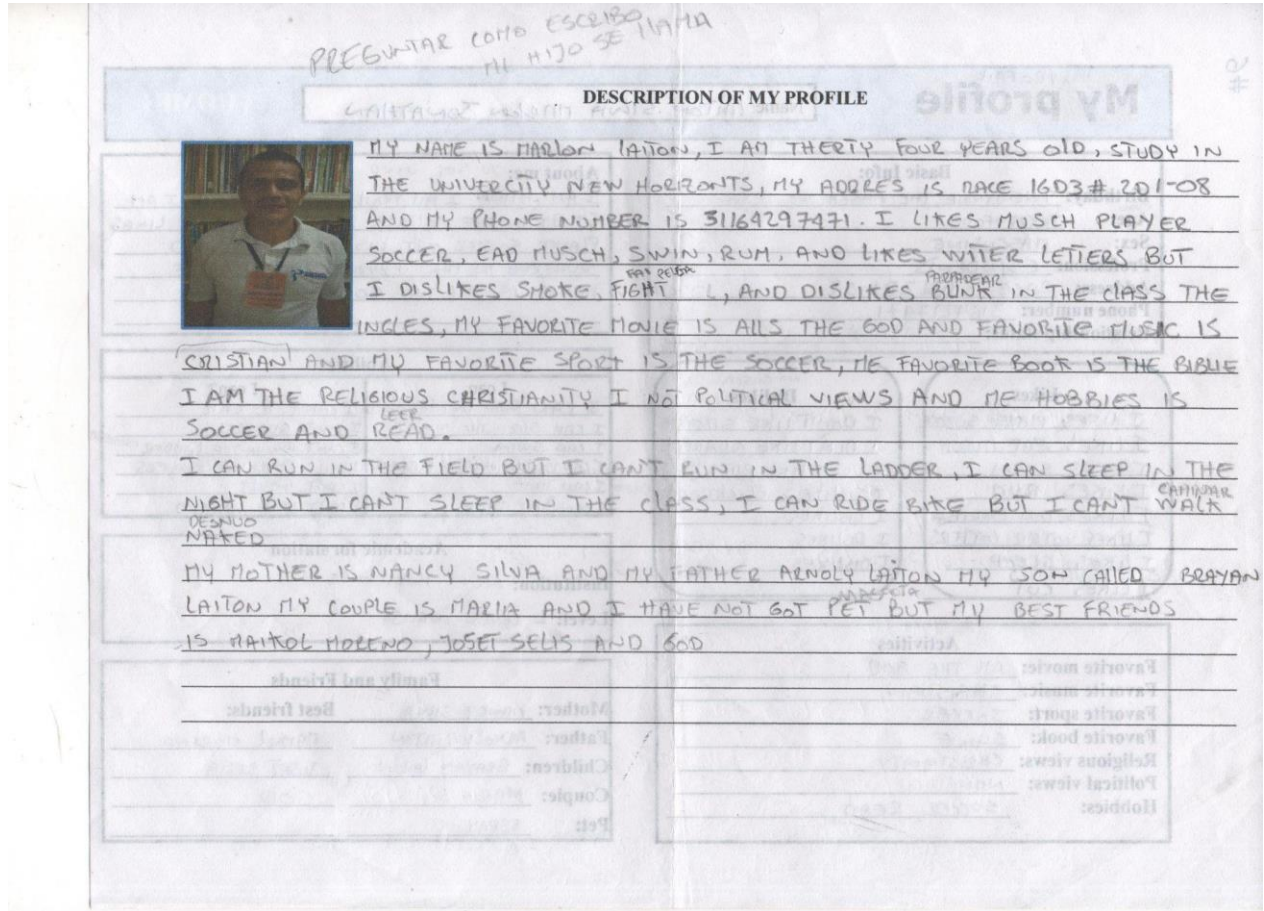 PREGUNTAR COMO ESCRIBO
MI HIJO SE LLAMA
DESCRIPTION OF MY PROFILE
MY NAME IS MARLON LAITON, I AM THERTY FOUR YEARS OLD, STUDY IN
THE UNIVERCITY NEW HORIZONTS, MY ADDRES IS RACE 16D3 # 201-08
AND MY PHONE NUMBER IS 31164297471. I LIKES MUSCH PLAYER
SOCCER, EAD MUSCH, SWIN, RUM, AND LIKES WITER LETTERS BUT
I DISLIKES SMOKE, FIGHT, AND DISLIKES BUNK IN THE CLASS THE
INGLES, MY FAVORITE MOVIE IS ALLS THE GOD AND FAVORITE MUSIC IS
CRISTIAN AND MY FAVORITE SPORT IS THE SOCCER, ME FAVORITE BOOK IS THE BIBLIE
I AM THE RELIGIOUS CHRISTIANITY I NOT POLITICAL VIEWS AND ME HOBBIES IS
LEER
SOCCER AND READ.
I CAN RUN IN THE FIELD BUT I CAN'T RUN IN THE LADDER, I CAN SLEEP IN THE
CAMINAR
NIGHT BUT I CANT SLEEP IN THE CLASS, I CAN RIDE BIKE BUT I CANT WALK
DESNUO
NAKED
MY MOTHER IS NANCY SILVA AND MY FATHER ARNOLY LAITON MY SON CALLED BRAYAN
MASCOTA
LAITON MY COUPLE IS MARIA AND I HAVE NOT GOT PET BUT MY BEST FRIENDS
IS MAIKOL MORENO, JOSET SELIS AND GOD